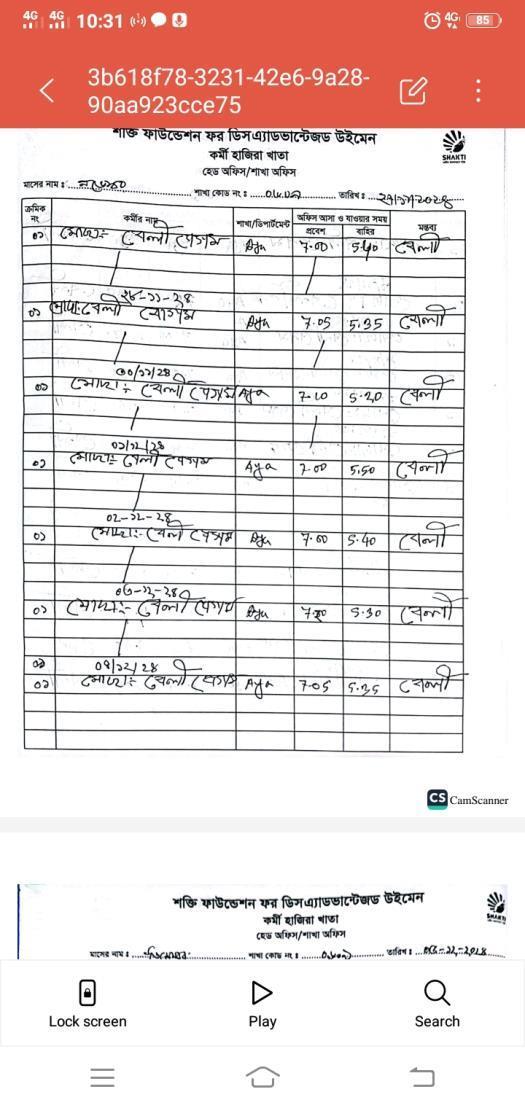 4G 4G 10:31 4G 85
3b618f78-3231-42e6-9a28-
90aa923cce75
শক্তি ফাউন্ডেশন ফর ডিসএ্যাডভান্টেজড উইমেন
কর্মী হাজিরা খাতা
হেড অফিস/শাখা অফিস
SHAKTI
মাসের নাম : শাখা কোড নং : তারিখ :
ক্রমিক নং কর্মীর নাম শাখা/ডিপার্টমেন্ট অফিস আসা ও যাওয়ার সময় মন্তব্য
প্রবেশ বাহির
০১ মোছাঃ বেলী বেগম Aya 7.00 5.40 বেলী
২৮-১১-২৪
০১ মোছাঃ বেলী বেগম Aya 7.05 5.35 বেলী
০১ মোছাঃ বেলী বেগম Aya 7.10 5.20 বেলী
০১ মোছাঃ বেলী বেগম Aya 7.00 5.50 বেলী
০২-১২-২৪
০১ মোছাঃ বেলী বেগম Aya 7.00 5.40 বেলী
০১ মোছাঃ বেলী বেগম Aya 5.30 বেলী
০১
০১ মোছাঃ বেলী বেগম Aya 7.05 5.35 বেলী
CS CamScanner
শক্তি ফাউন্ডেশন ফর ডিসএ্যাডভান্টেজড উইমেন
কর্মী হাজিরা খাতা
হেড অফিস/শাখা অফিস
SHAKTI
মাসের নাম : শাখা কোড নং : তারিখ :
Lock screen Play Search